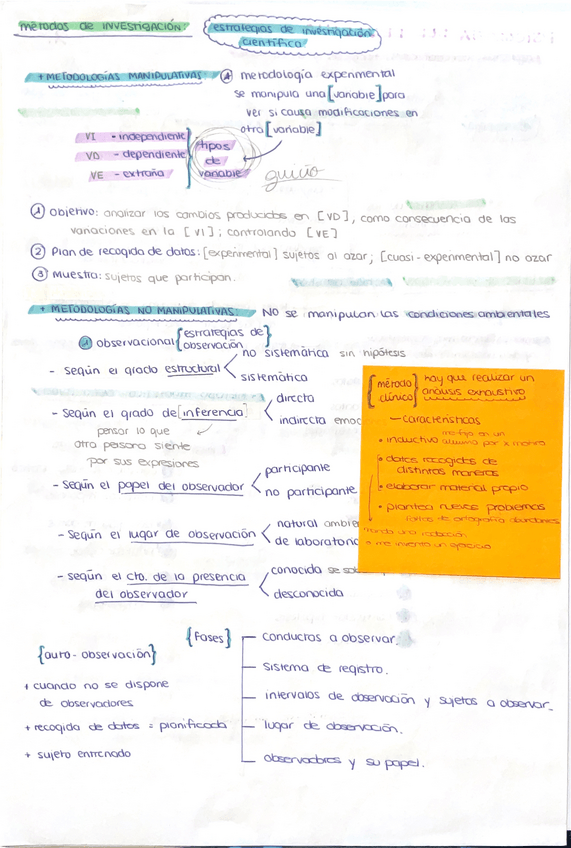 métodos de INVESTIGACIÓN
estrategias de investigación
científica
+ METODOLOGÍAS MANIPULATIVAS
① metodología experimental
se manipula una [variable] para
ver si causa modificaciones en
otra [variable]
VI - independiente
VD - dependiente
VE - extraña
tipos
de
variable
guiño
① Objetivo: analizar los cambios producidos en [VD], como consecuencia de las
variaciones en la [VI]; controlando [VE]
② Plan de recogida de datos: [experimental] sujetos al azar; [cuasi-experimental] no azar
③ Muestra: sujetos que participan.
+ METODOLOGÍAS NO MANIPULATIVAS
NO se manipulan las condiciones ambientales
② observacional {estrategias de
observación}
- según el grado estructural
no sistemática sin hipótesis
sistemática
- según el grado de [inferencia]
directa
indirecta emoc
pensar lo que
otra persona siente
por sus expresiones
- según el papel del observador
participante
no participante
- según el lugar de observación
natural ambie
de laboratorio
- según el cto. de la presencia
del observador
conocida se sa
desconocida
[método
clínico]
hay que realizar un
análisis exhaustivo
- características
me fijo en un
• inductivo alumno por x motivo
• datos recogidos de
distintas maneras
• elaborar material propio
• plantea nuevos problemas
faltas de ortografía abundantes
mando una redacción
me invento un ejercicio
{auto-observación}
+ cuando no se dispone
de observadores
+ recogida de datos = planificada
+ sujeto entrenado
{Fases}
conductas a observar.
sistema de registro.
intervalos de observación y sujetos a observar.
lugar de observación.
observadores y su papel.